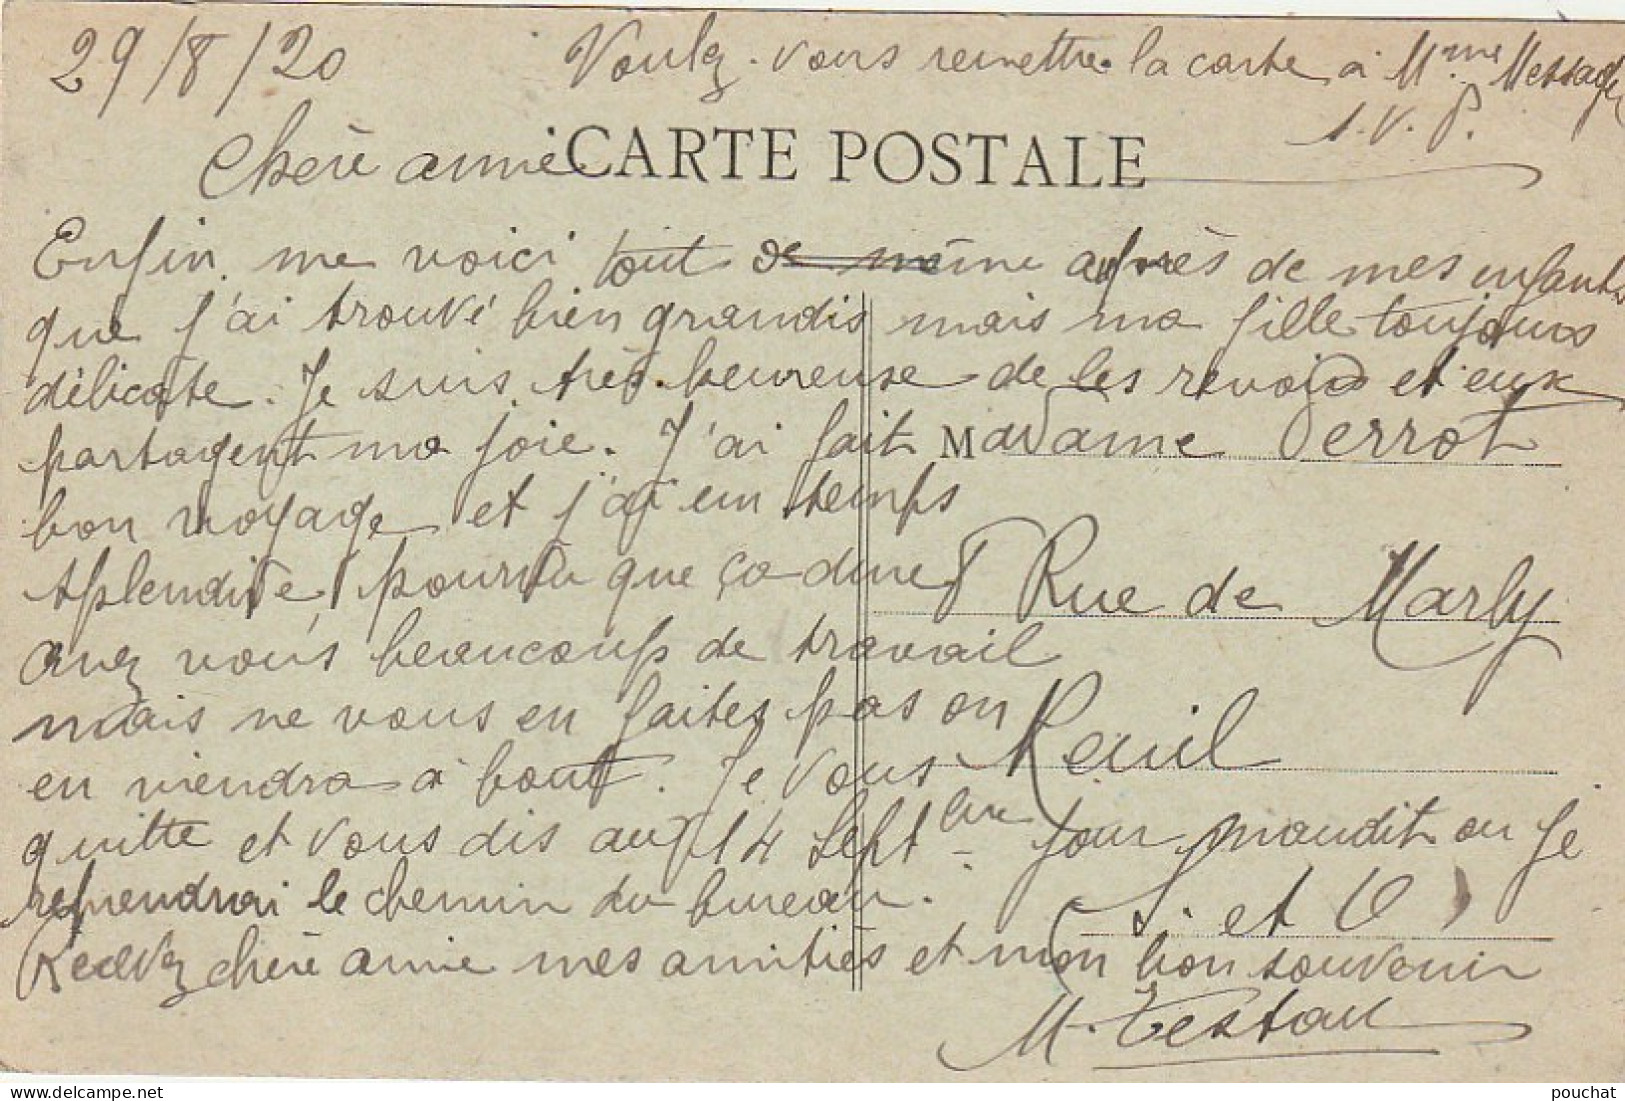 29/8/20
Voulez-vous remettre la carte à Mme Messager
s.v.p.
Chère amie
CARTE POSTALE
Enfin me voici tout de même auprès de mes enfants
que j'ai trouvé bien grandis mais ma fille toujours
délicate. Je suis très heureuse de les revoir et eux
partagent ma joie. J'ai fait
bon voyage et j'ai eu temps
splendide, pourvu que ça dure
avez vous beaucoup de travail
mais ne vous en faites pas on
en viendra à bout. Je vous
quitte et vous dis au 14 Septbre jour maudit ou je
reprendrai le chemin du bureau.
Recevez chère amie mes amitiés et mon bon souvenir
M. Testau
Madame Perrot
Rue de Marly
Reuil
(S. et O)
pouchat